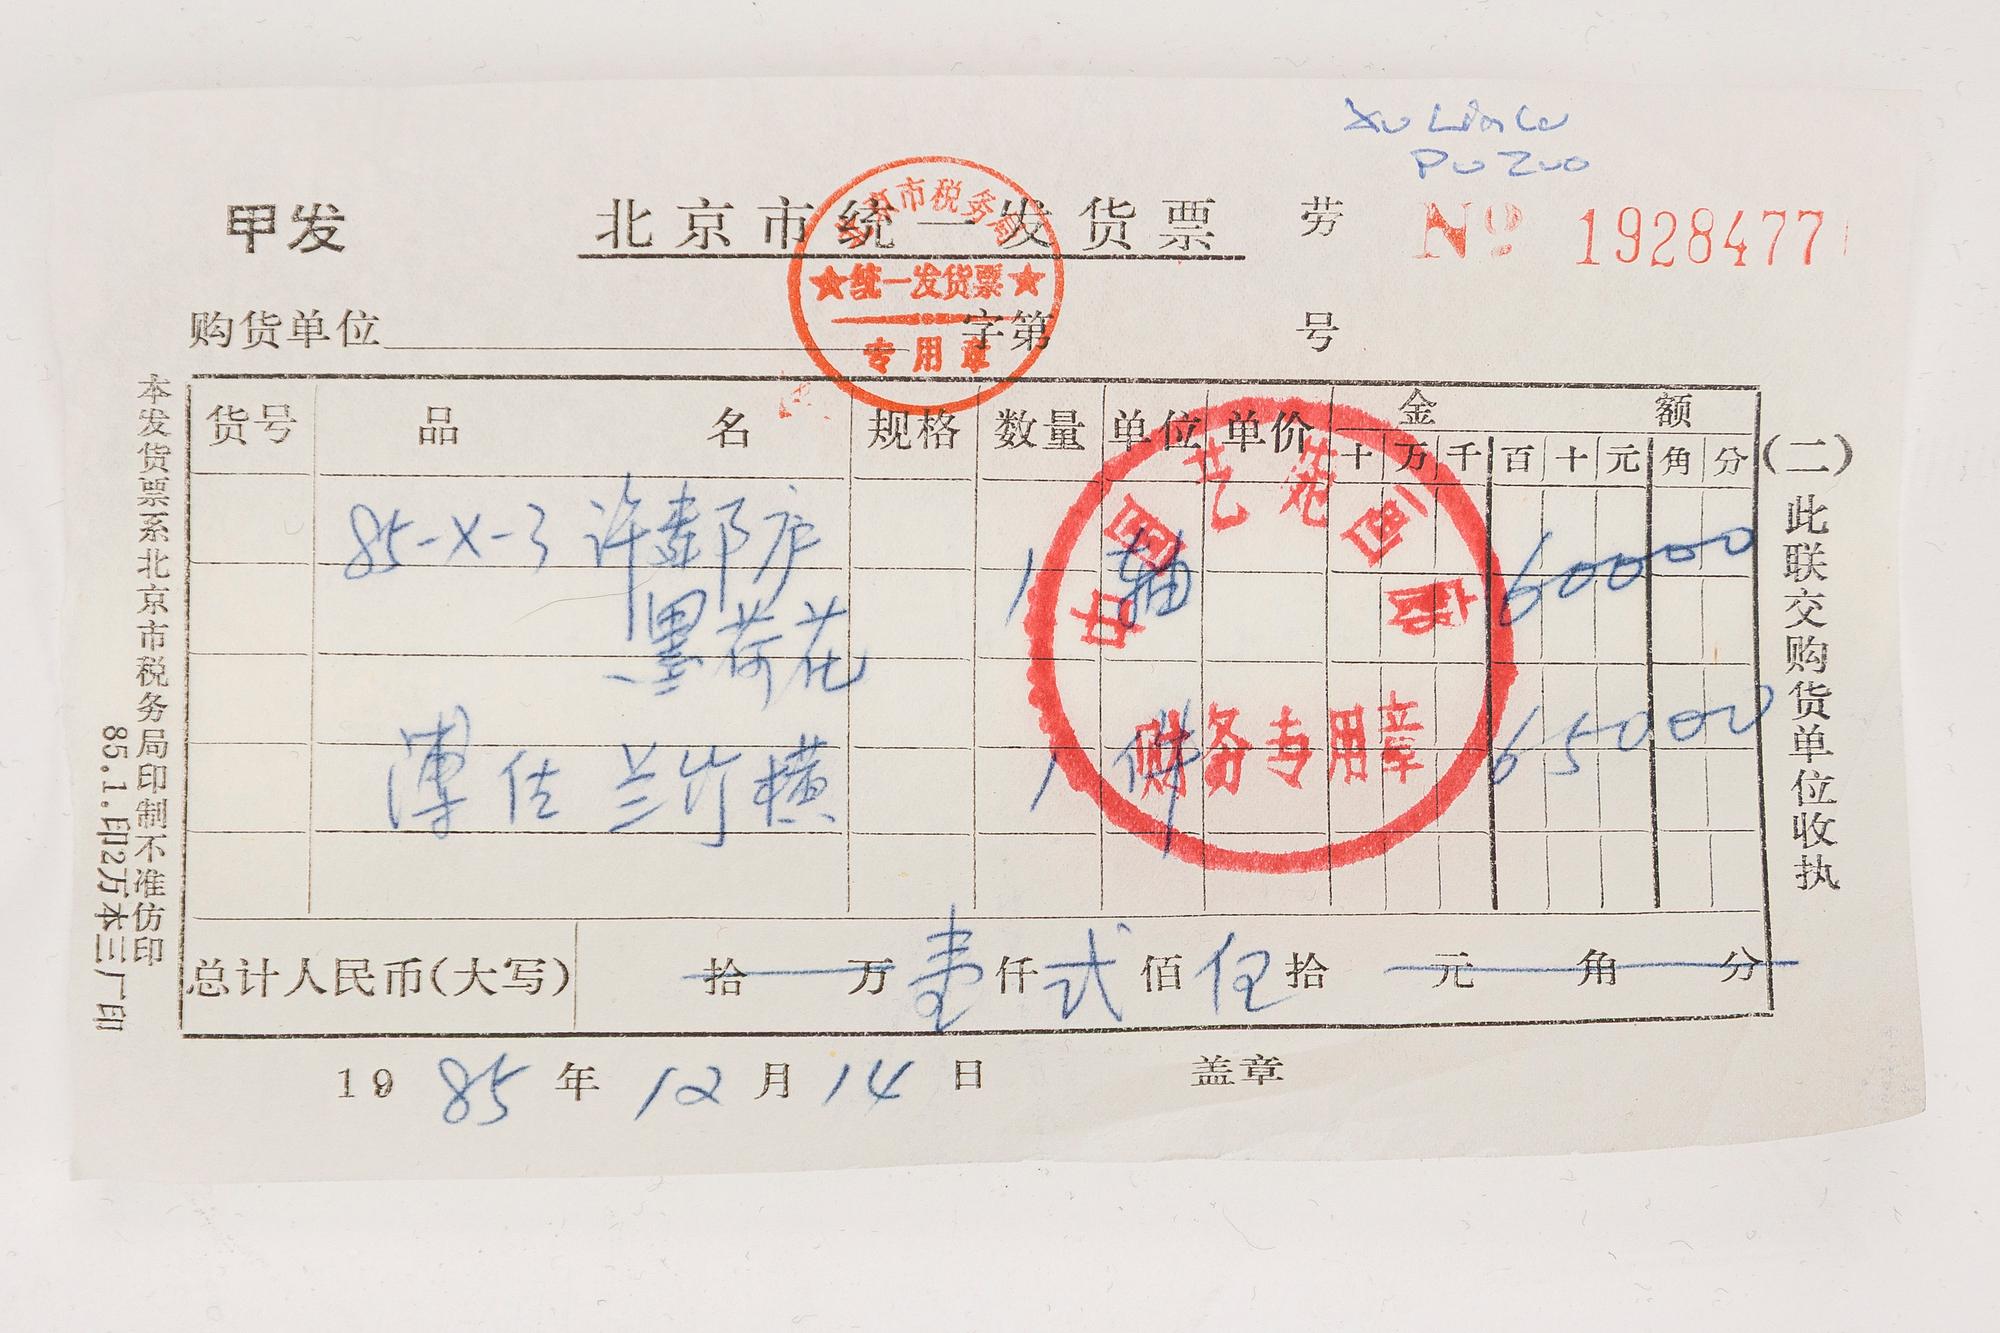 Xu Lin Lu
Pu Zuo
甲发
北京市统一发货票
劳
№ 1928477
北京市税务局
★统一发货票★
专用章
购货单位
字第
号
货号 品名 规格 数量 单位 单价 金额
十 万 千 百 十 元 角 分
85-X-3 许麐庐 1 轴 60000
墨荷花
溥佐 兰竹横 1 件 65000
中国艺苑画店
财务专用章
总计人民币(大写) 拾 万 壹 仟 弍 佰 伍 拾 元 角 分
1985年12月14日 盖章
(二)此联交购货单位收执
本发货票系北京市税务局印制不准仿印
85.1.印2万本三厂印